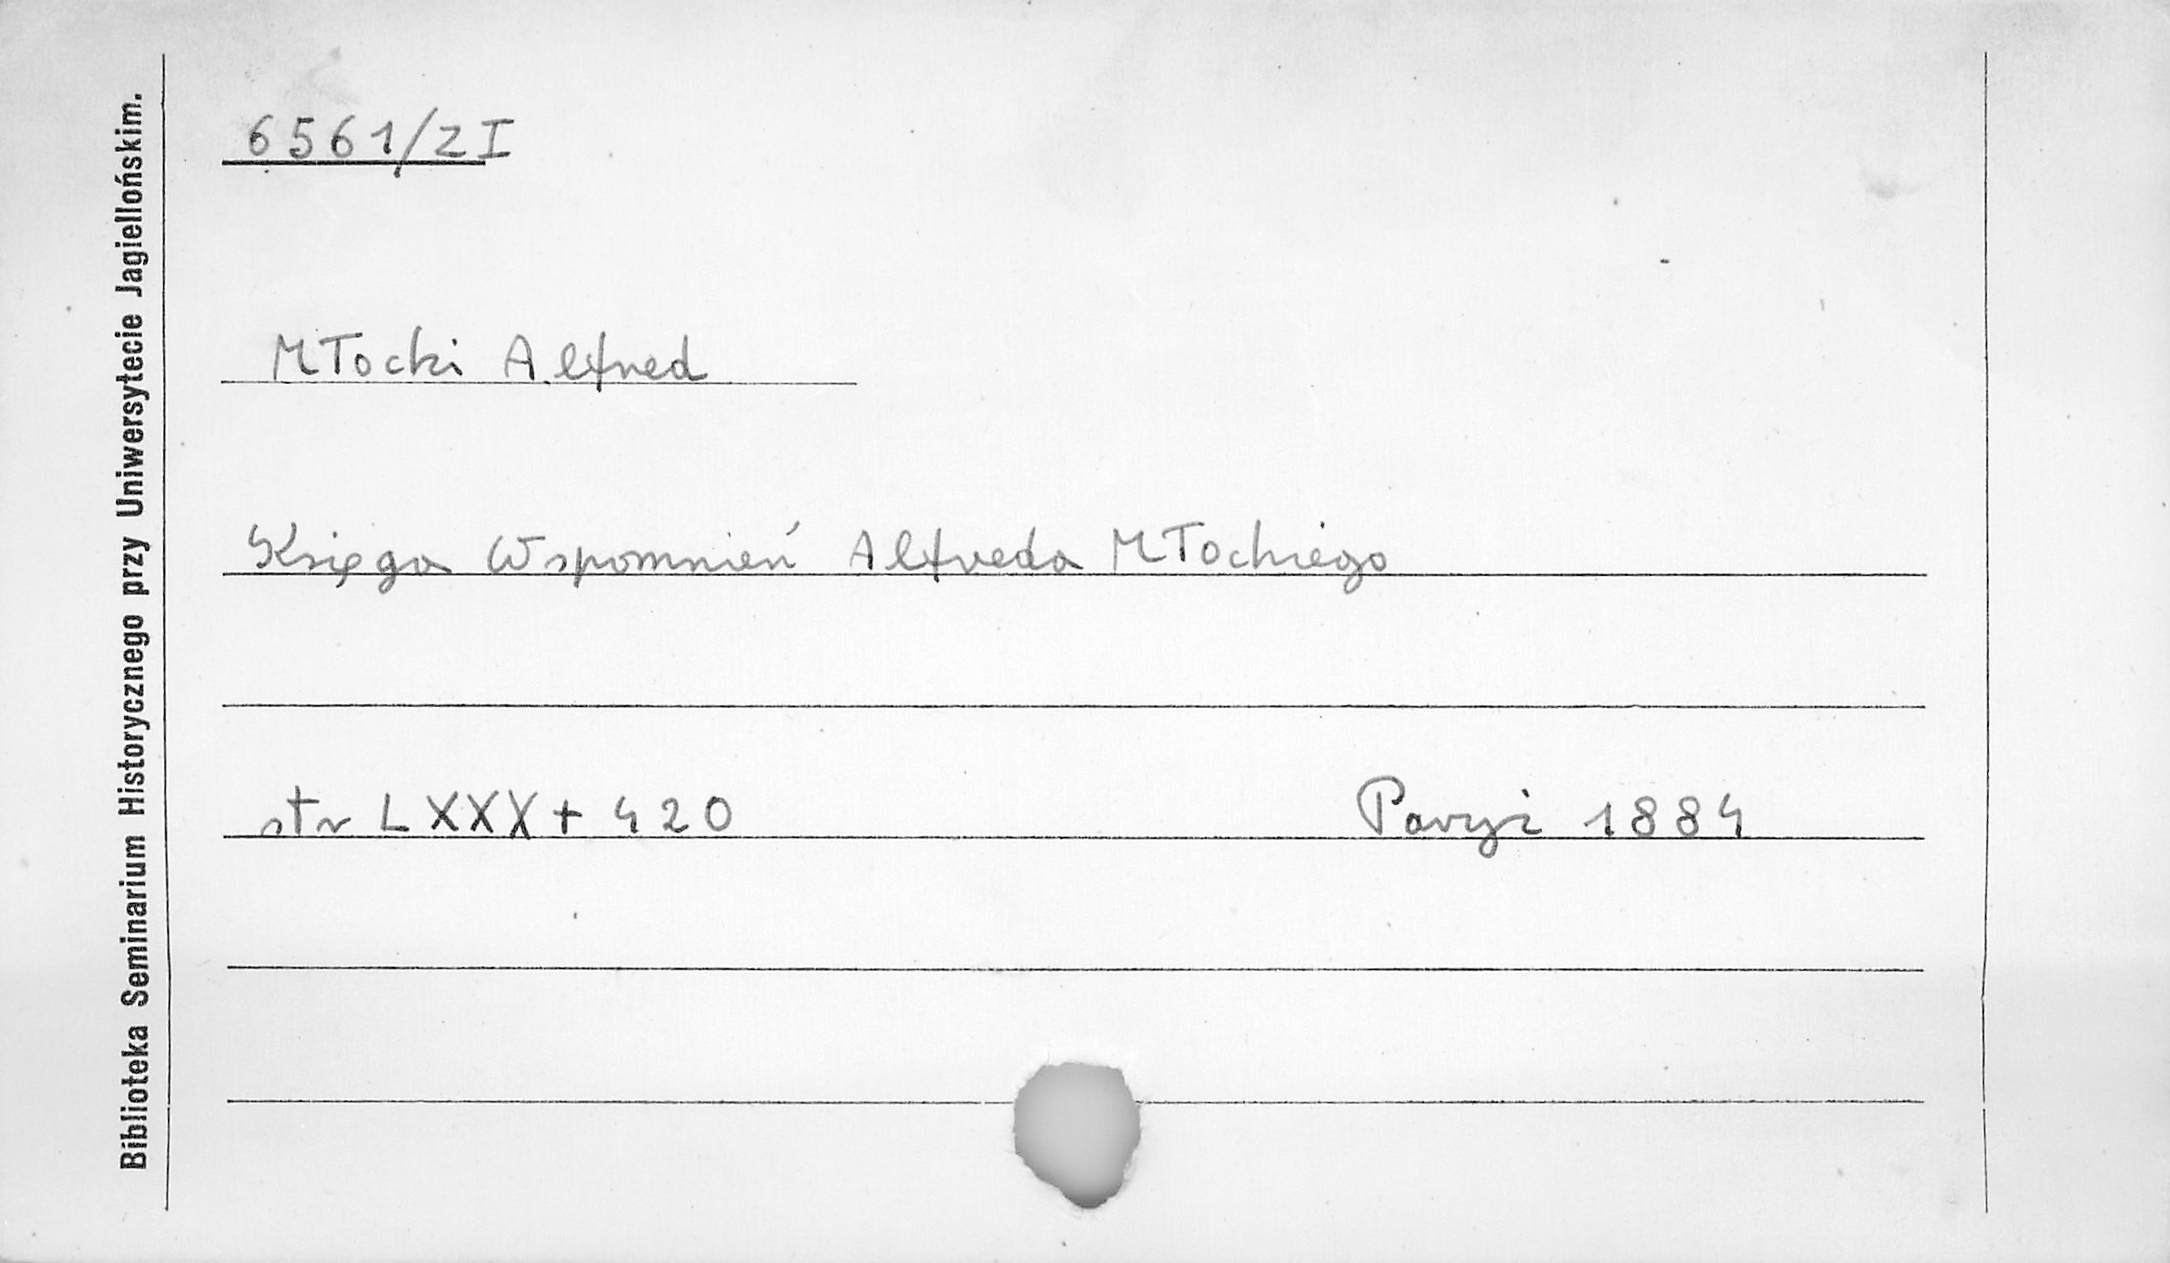 Biblioteka Seminarium Historycznego przy Uniwersytecie Jagiellońskim.
6561/2I
Młocki Alfred
Księga Wspomnień Alfreda Młockiego
str LXXX + 420 Paryż 1884